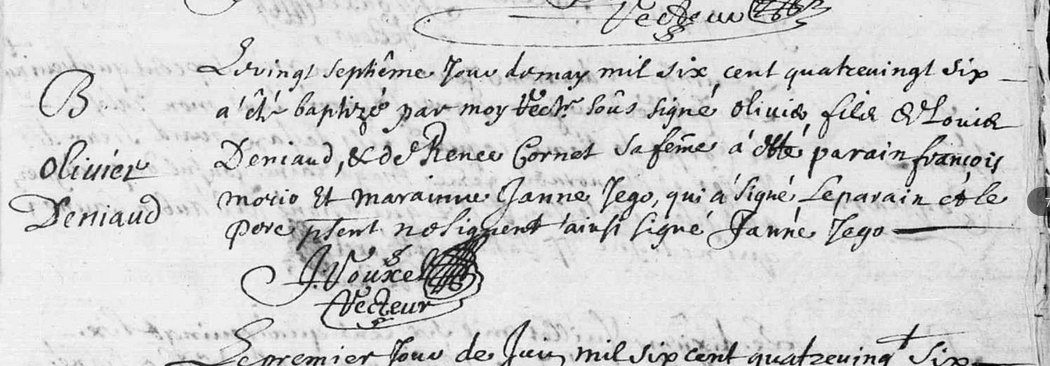 Recteur
Le vingt septiême Jour de may mil six cent quatrevingt six
a été baptizé par moy Rectr. soûs signé olivier fils de Louis
B
Olivier
Deniaud
Deniaud, & de Renee Cornet sa fême á etté parain francois
morio Et maraine Janne Jego, qui á signé Le parain et le
pere pñent ne signent ainsi signé Janne Jego
J. Vouxel
Recteur
Le premier Jour de Juin mil six cent quatrevingt six